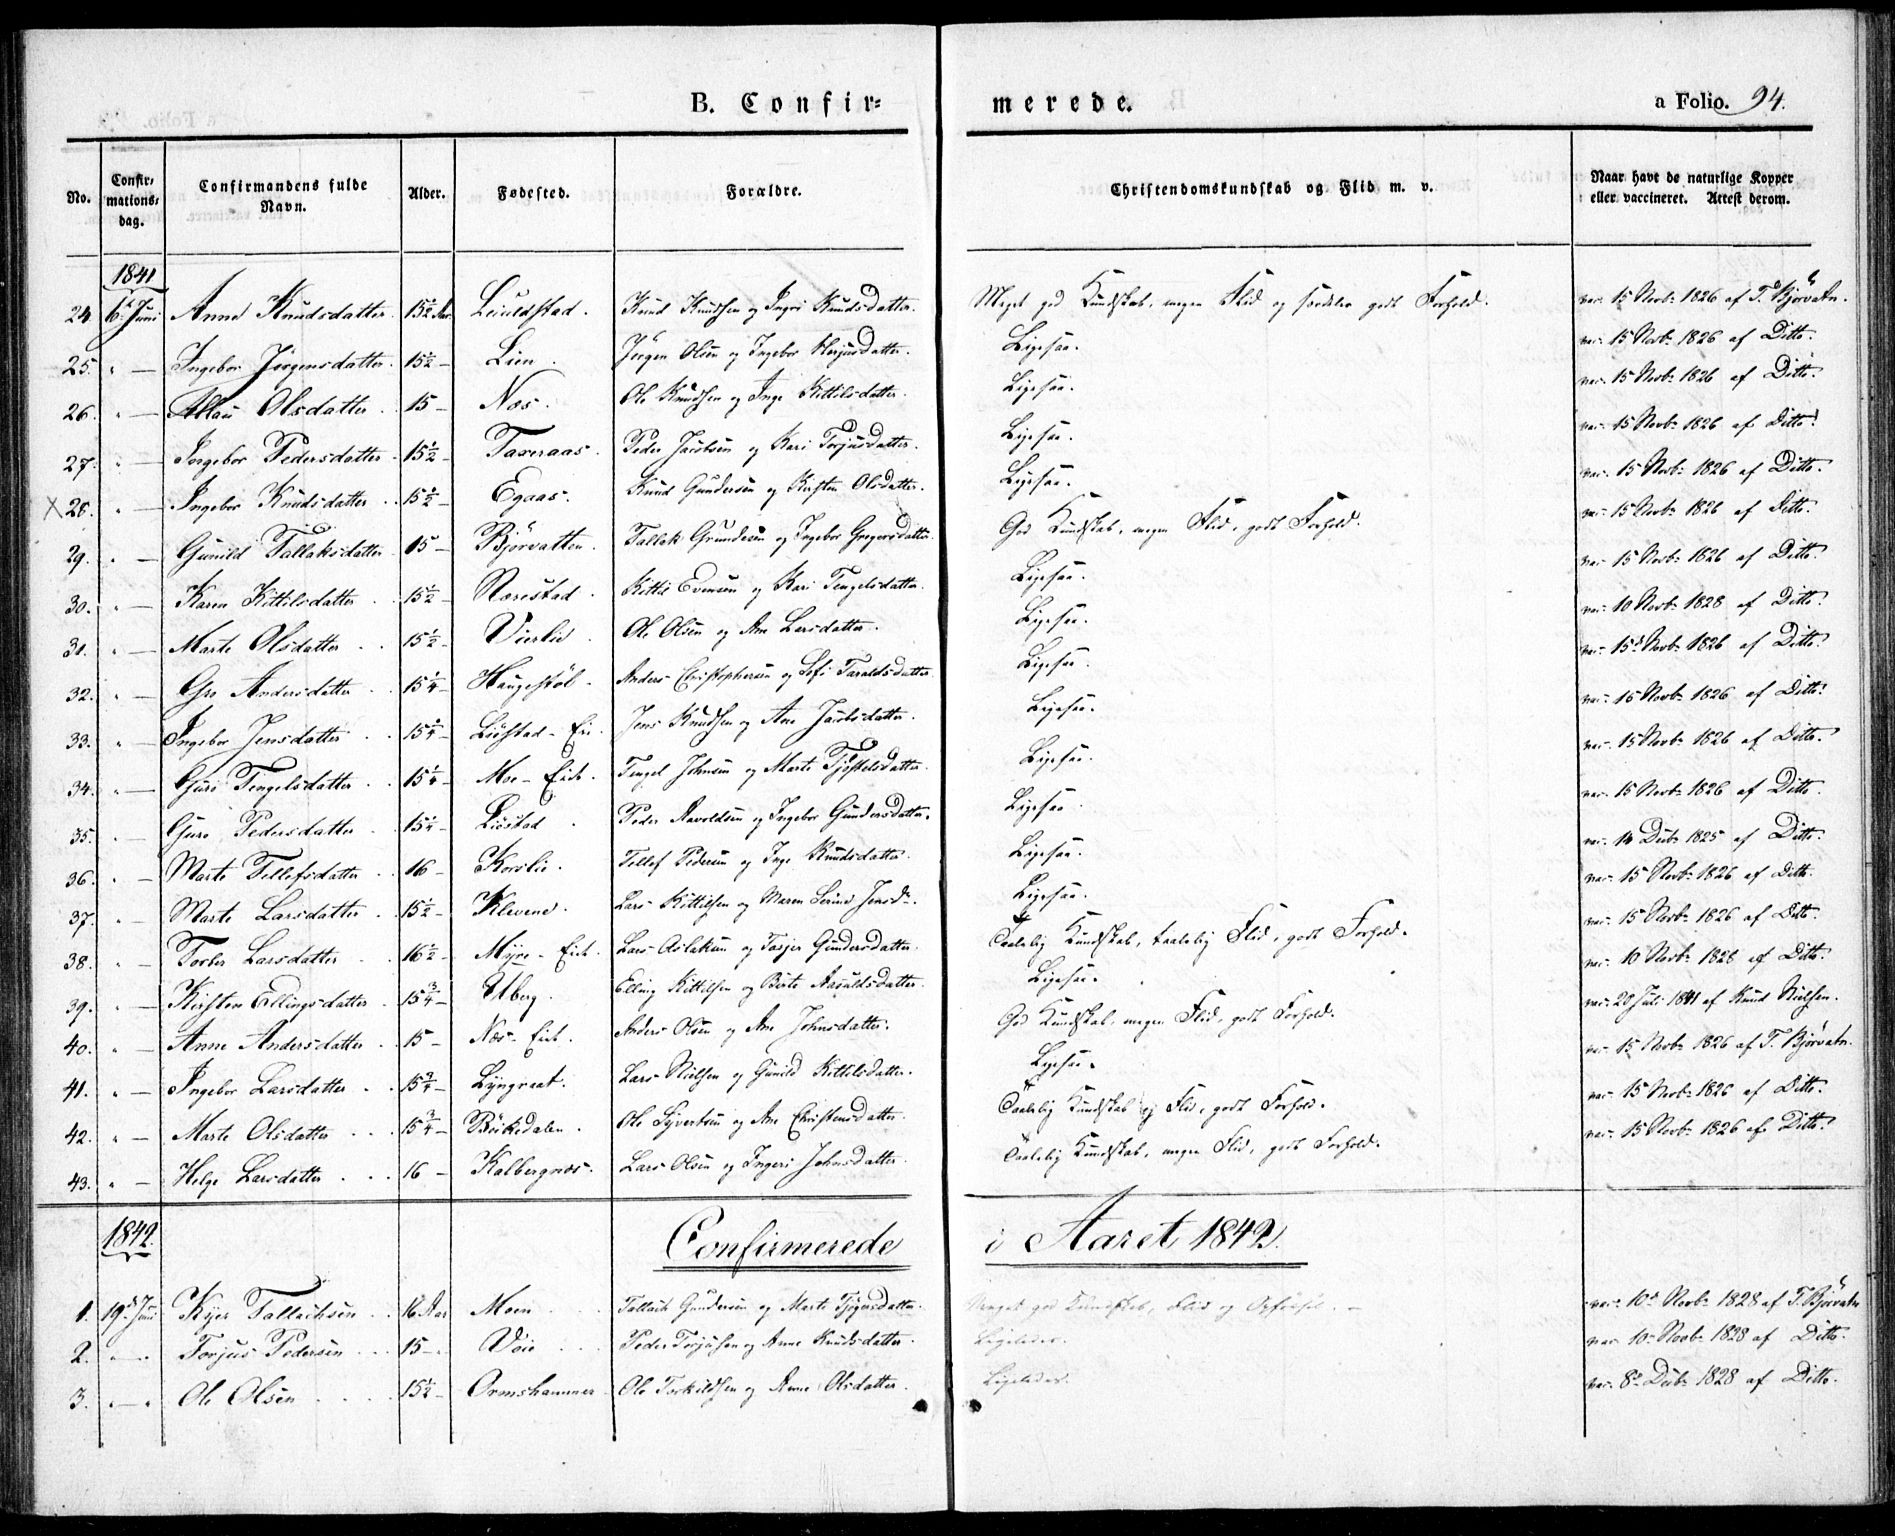 B. Confir= merede. a Folio. 94.
No. Confir= mations= dag. Confirmandens fulde Navn. Alder. Fødested. Forældre. Christendomskundskab og Flid m. v. Naar havt de naturlige Kopper eller vaccineret. Attest derom.
1841
24 6t Juni Anne Knudsdatter. 15½ Aar Leuildstad. Knud Knudsen og Ingri Knudsdatter. Meget god Kundskab, megen Flid og særdeles godt Forhold. vac. 15 Novbr 1826 af T. Bjørvatn.
25. " — Ingebor Jørgensdatter. 15½ — Lien. Jörgen Olsen og Ingebor Herjusdatter. Ligesaa. vac. 15 Novbr 1826 af Ditto.
26. " — Olsdatter 15 — Næs. Ole Knudsen og Inge Kittilsdatter. Ligesaa. vac. 15 Novbr 1826 af Ditto.
27. " — Ingebor Pedersdatter 15½ — Taxeraas. Peder Jacobsen og Kari Torjusdatter. Ligesaa. vac. 15 Novbr 1826 af Ditto.
X 28. " — Ingebor Knudsdatter 15½ — Egaas. Knud Gundersen og Kirsten Olsdatter. Ligesaa. vac. 15 Novbr 1826 af Ditto.
29. " — Gunild Tallaksdatter 15 — Bjørvatten. Tallak Gundersen og Ingebor Gregersdatter. God Kundskab, megen Flid, godt Forhold. vac. 15 Novbr 1826 af Ditto.
30. " — Karen Kittilsdatter 15½ — Rørestad. Kittil Evensen og Kari Tengelsdatter. Ligesaa. vac. 15 Novbr 1826 af Ditto.
31. " — Marte Olsdatter 15½ — Vierlie. Ole Olsen og Ane Larsdatter. Ligesaa. vac. 10 Novbr 1828 af Ditto.
32. " — Gro Andersdatter 15¼ — Haugestøl. Anders Christophersen og Sofi Taraldsdatter. Ligesaa. vac. 15d Novbr 1826 af Ditto.
33. " — Ingebor Jensdatter 15¼ — Lööstad - Eie. Jens Knudsen og Ane Jacobsdatter. Ligesaa. vac. 15 Novbr 1826 af Ditto.
34. " — Guri Tengelsdatter 15¼ — Moe - Eiet. Tengel Johnsen og Marte Tjøstelsdatter. Ligesaa. vac. 15 Novbr 1826 af Ditto.
35. " — Guro Pedersdatter 15¼ — Liöstad Peder Aavoldsen og Ingebor Gundersdatter. Ligesaa. vac. 15 Novbr 1826 af Ditto.
36. " — Marte Tellefsdatter 16 — Korslie. Tellef Pedersen og Inge Knudsdatter. Ligesaa. vac. 14 Decbr 1825 af Ditto.
37. " — Marte Larsdatter 15½ — Klevene. Lars Kittilsen og Maren Serine Jensd. Ligesaa. vac. 15 Novbr 1826 af Ditto.
38. " — Torber Larsdatter 16½ — Myre - Eiet. Lars Aslaksen og Tarjer Gundersdatter. Taalelig Kundskab, taalelig Flid, godt Forhold. vac. 15 Novbr 1826 af Ditto.
39. " — Kirsten Ellingsdatter 15¾ — Uberg. Elling Kittilsen og Birte Aanuldsdatter. Ligesaa. vac. 10 Novbr 1828 af Ditto.
40. " — Anne Andersdatter 15 — Næs - Eiet. Anders Olsen og Ane Johnsdatter. God Kundskab, megen Flid, godt Forhold. vac. 20 Juli 1841 af Knud Nielsen.
41. " — Ingebor Larsdatter 15¾ — Lyngraat. Lars Nielsen og Gunild Kittilsdatter. Ligesaa. vac. 15 Novbr 1826 af T. Bjørvatn.
42. " — Marte Olsdatter 15¾ — Böikedalen. Ole Syvertsen og Ane Christensdatter. Taalelig Kundskab og Flid, godt Forhold. vac. 15 Novbr 1826 af Ditto.
43. " — Helge Larsdatter 16 — Kalbergnæs. Lars Olsen og Ingeri Johnsdatter. Taalelig Kundskab, megen Flid, godt Forhold. vac. 15 Novbr 1826 af Ditto.
1842. Confirmerede i Aaret 1842.
1. 19d Juni Kjer Tallachsen 16 Aar Moen Tallach Gundersen og Marte Tjøgersdatter Meget god Kundskab, Flid og Opførsel. vac. 10d Novbr 1828 af T. Bjørvatn
2. " — Torjus Pedersen 15 — Vöie Peder Torjusen og Anne Knudsdatter. Ligeledes. vac. 10 Novbr 1828 af Ditto.
3. " — Ole Olsen 15½ — Ormshammer Ole Torkildsen og Anne Olsdatter. Ligeledes. vac. 8d Decbr 1828 af Ditto.